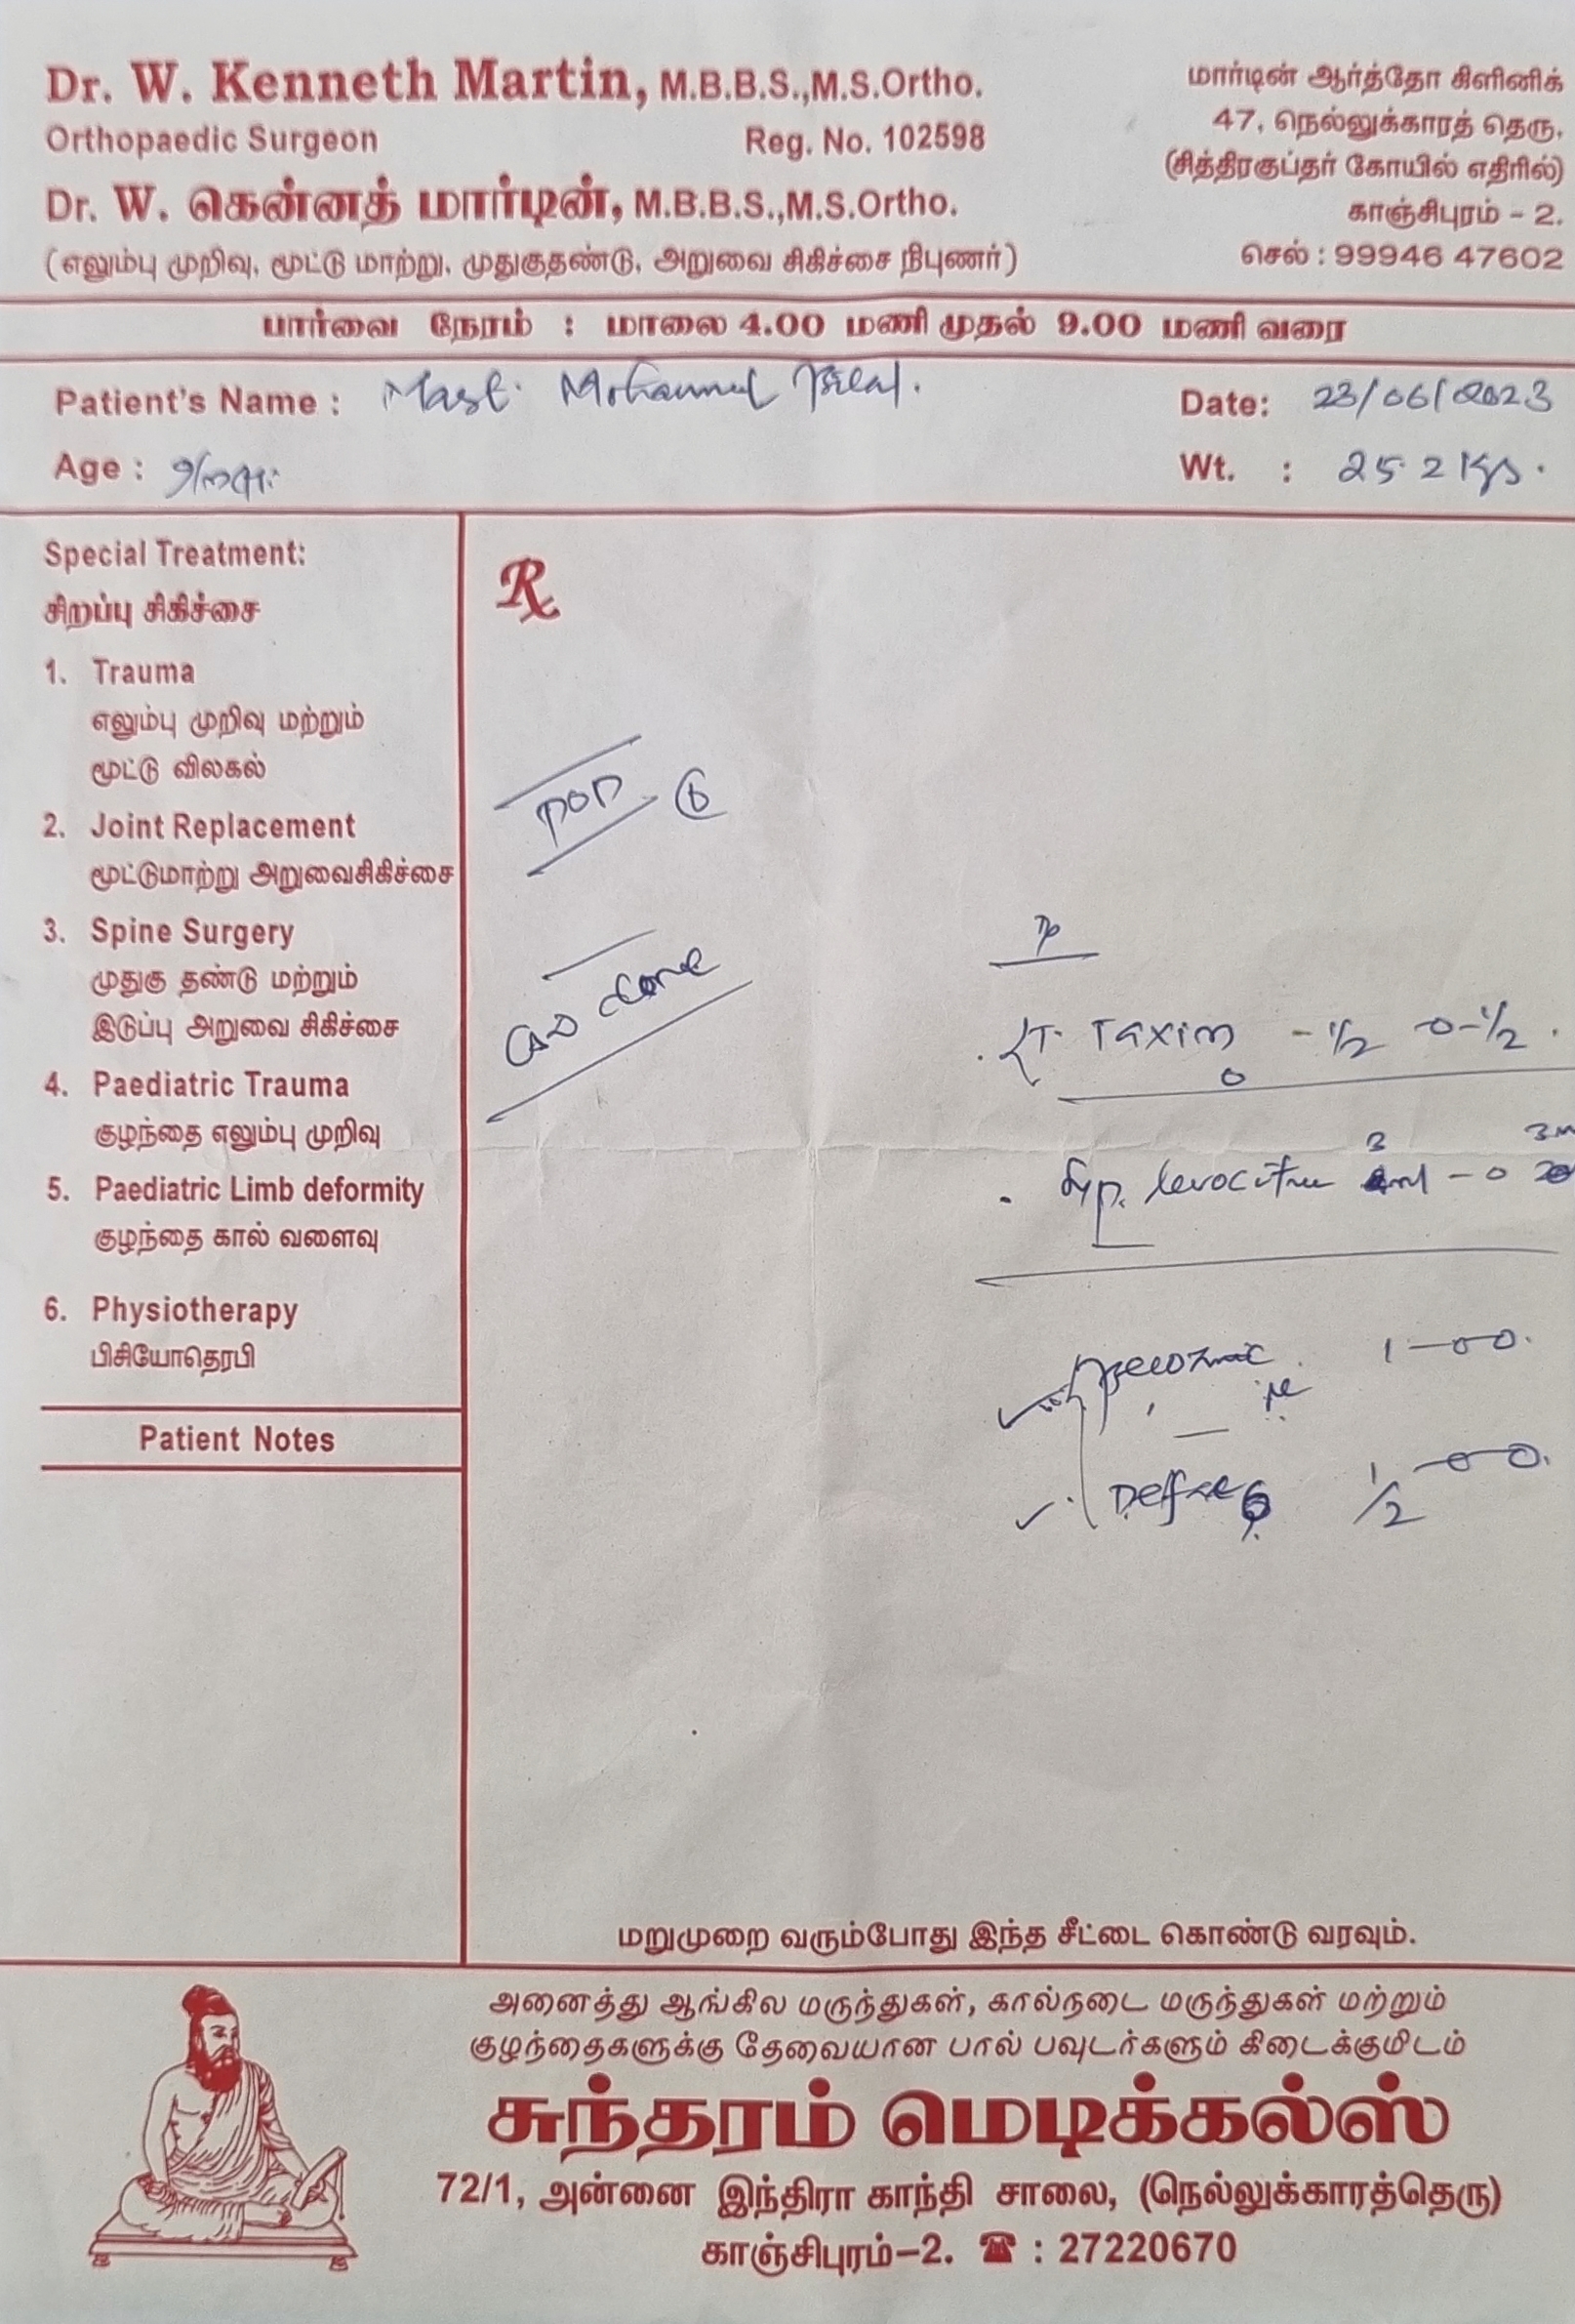 Dr. W. Kenneth Martin, M.B.B.S.,M.S.Ortho.
Orthopaedic Surgeon Reg. No. 102598
Dr. W. கென்னத் மார்டின், M.B.B.S.,M.S.Ortho.
(எலும்பு முறிவு, மூட்டு மாற்று, முதுகுதண்டு, அறுவை சிகிச்சை நிபுணர்)
மார்டின் ஆர்த்தோ கிளினிக்
47, நெல்லுக்காரத் தெரு,
(சித்திரகுப்தர் கோயில் எதிரில்)
காஞ்சிபுரம் - 2.
செல் : 99946 47602
பார்வை நேரம் : மாலை 4.00 மணி முதல் 9.00 மணி வரை
Patient's Name : Mast. Mohammed Bilal. Date: 23/06/2023
Age : 9/m Wt. : 25.2 Kgs.
Special Treatment:
சிறப்பு சிகிச்சை
1. Trauma
எலும்பு முறிவு மற்றும்
மூட்டு விலகல்
2. Joint Replacement
மூட்டுமாற்று அறுவைசிகிச்சை
3. Spine Surgery
முதுகு தண்டு மற்றும்
இடுப்பு அறுவை சிகிச்சை
4. Paediatric Trauma
குழந்தை எலும்பு முறிவு
5. Paediatric Limb deformity
குழந்தை கால் வளைவு
6. Physiotherapy
பிசியோதெரபி
Patient Notes
Rx
POP
done
T. Taxim O - 1/2 0-1/2.
Syp. 3 ml - 0 3m
1-00.
6 1/2 -00.
மறுமுறை வரும்போது இந்த சீட்டை கொண்டு வரவும்.
அனைத்து ஆங்கில மருந்துகள், கால்நடை மருந்துகள் மற்றும்
குழந்தைகளுக்கு தேவையான பால் பவுடர்களும் கிடைக்குமிடம்
சுந்தரம் மெடிக்கல்ஸ்
72/1, அன்னை இந்திரா காந்தி சாலை, (நெல்லுக்காரத்தெரு)
காஞ்சிபுரம்-2. ☎ : 27220670